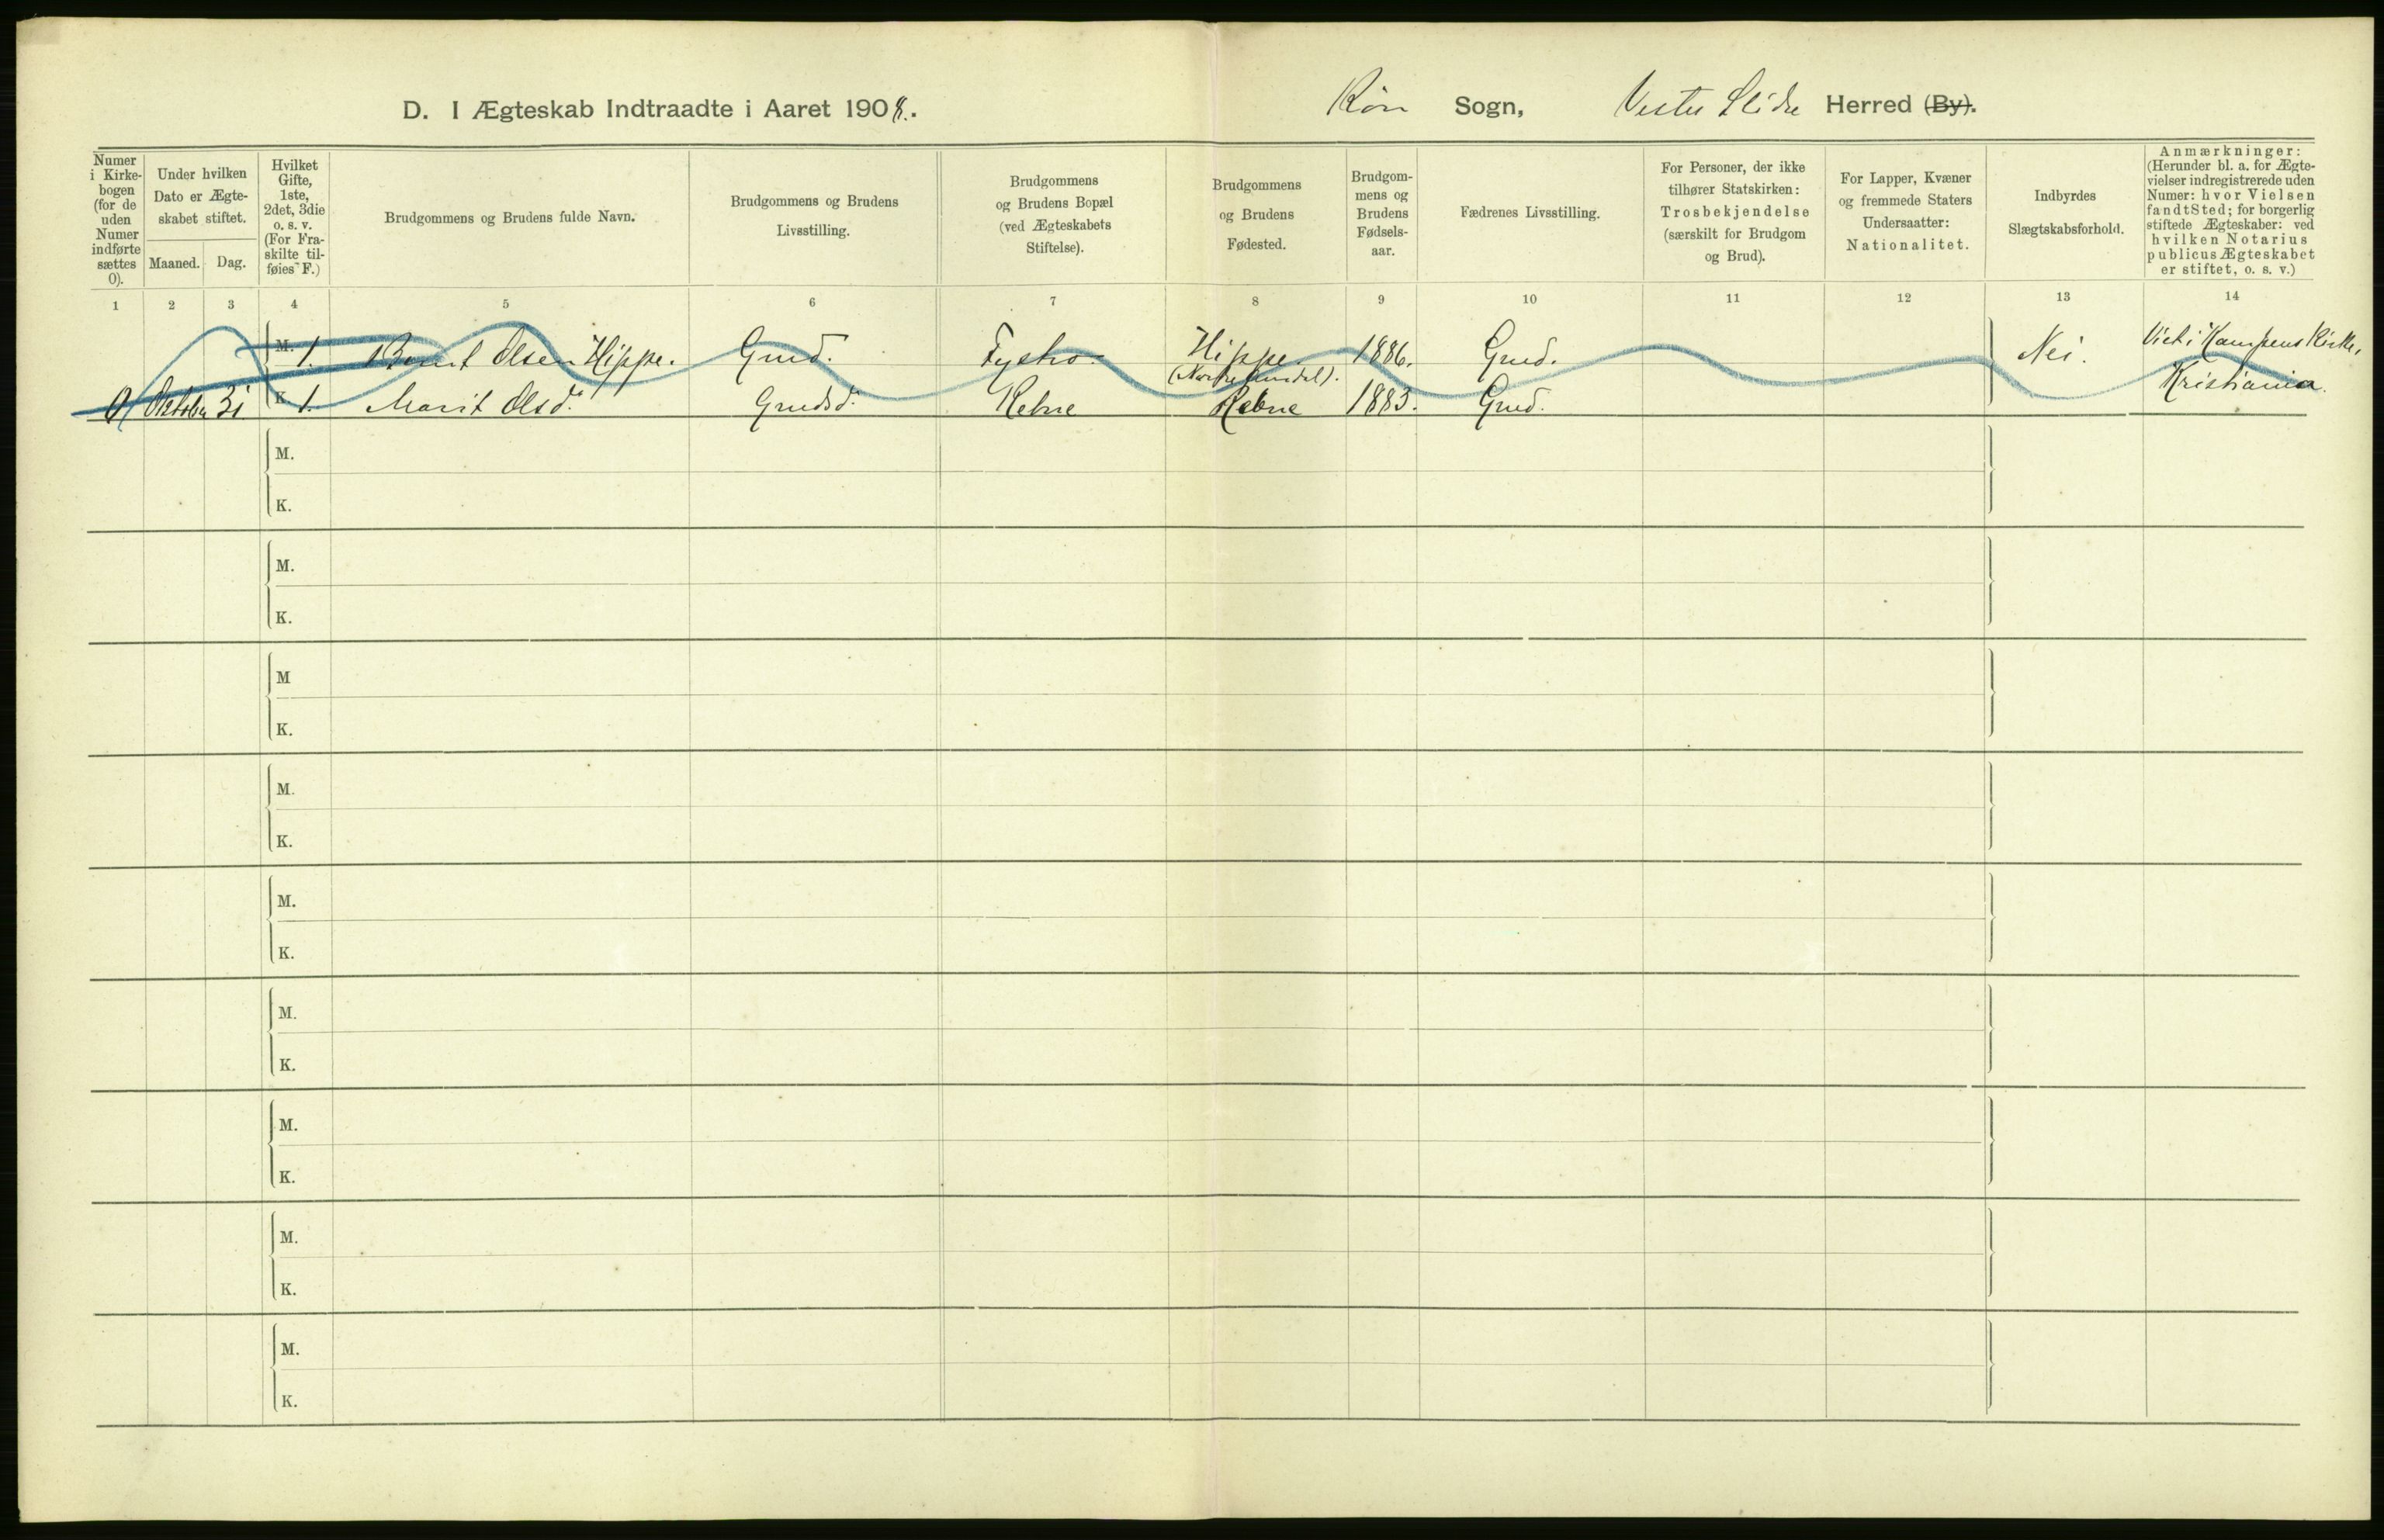 D. I Ægteskab Indtraadte i Aaret 1908.
Røn Sogn, Vestre Slidre Herred (By).
Numer i Kirkebogen (for de uden Numer indførte sættes 0).
Under hvilken Dato er Ægteskabet stiftet.
Maaned. Dag.
Hvilket Gifte, 1ste, 2det, 3die o. s. v. (For Fraskilte tilføies F.)
Brudgommens og Brudens fulde Navn.
Brudgommens og Brudens Livsstilling.
Brudgommens og Brudens Bopæl (ved Ægteskabets Stiftelse).
Brudgommens og Brudens Fødested.
Brudgommens og Brudens Fødselsaar.
Fædrenes Livsstilling.
For Personer, der ikke tilhører Statskirken: Trosbekjendelse (særskilt for Brudgom og Brud).
For Lapper, Kvæner og fremmede Staters Undersaatter: Nationalitet.
Indbyrdes Slægtskabsforhold.
Anmærkninger: (Herunder bl. a. for Ægtevielser indregistrerede uden Numer: hvor Vielsen fandt Sted; for borgerlig stiftede Ægteskaber: ved hvilken Notarius publicus Ægteskabet er stiftet, o. s. v.)
1 2 3 4 5 6 7 8 9 10 11 12 13 14
M. 1. Olsen Hippe. Gmd. Fystro Hippe 1886. Gmd. Nei. Viet i Kampens Kirke,
Kristiania.
0 Oktober 31 K. 1. Marit Olsd. Gmdsd. Rebne Rebne 1883. Gmd.
M.
K.
M.
K.
M
K.
M.
K.
M.
K.
M.
K.
M.
K.
M.
K.
M.
K.